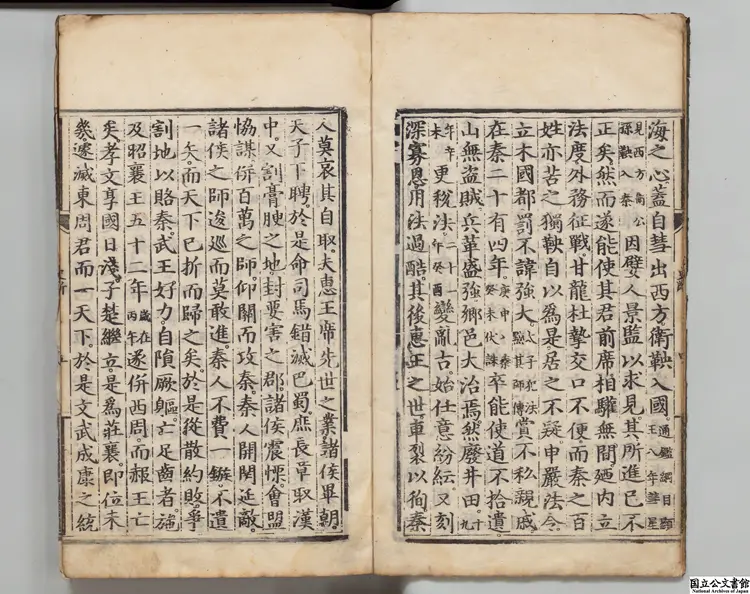 海之心蓋自彗出西方。衛鞅入國。通鑑綱目顯王八年彗星
見西方衛公孫鞅入秦因嬖人景監以求見。其所進已不
正矣然而遂能使其君前席相驩無間。廼內立
法度外務征戰。甘龍杜摯交口不便而秦之百
姓亦苦之獨鞅自以爲是居之不疑。申嚴法令。
立木國都罰不諱強大。太子犯法黥其師傅賞不私親戚。
在秦二十有四年。庚申入秦癸未伏誅卒能使道不拾遺。
山無盜賊兵革盛強鄉邑大治焉。然廢井田。十九
年辛未更稅法二十一年癸酉變亂古。始任意紛紜又刻
深寡恩用法過酷。其後惠王之世。車裂以徇秦
人莫哀其自取。夫惠王席先世之業諸侯畢朝
天子下聘於是命司馬錯滅巴蜀。庶長章取漢
中。又割膏腴之地。封要害之郡。諸侯震慄。會盟
恊謀倂百萬之師仰關而攻秦。秦人開関延敵。
諸侯之師逡巡而莫敢進。秦人不費一鏃。不遺
一矢。而天下已折而歸之矣。於是從散約敗。爭
割地以賂秦。武王好力。自隕厥軀。亡足齒者。施
及昭襄王五十二年歲在丙午遂倂西周。而赧王亡
矣孝文享國日淺。子楚繼立。是爲莊襄。即位未
幾遽滅東周君而一天下。於是文武成康之統
国立公文書館
National Archives of Japan